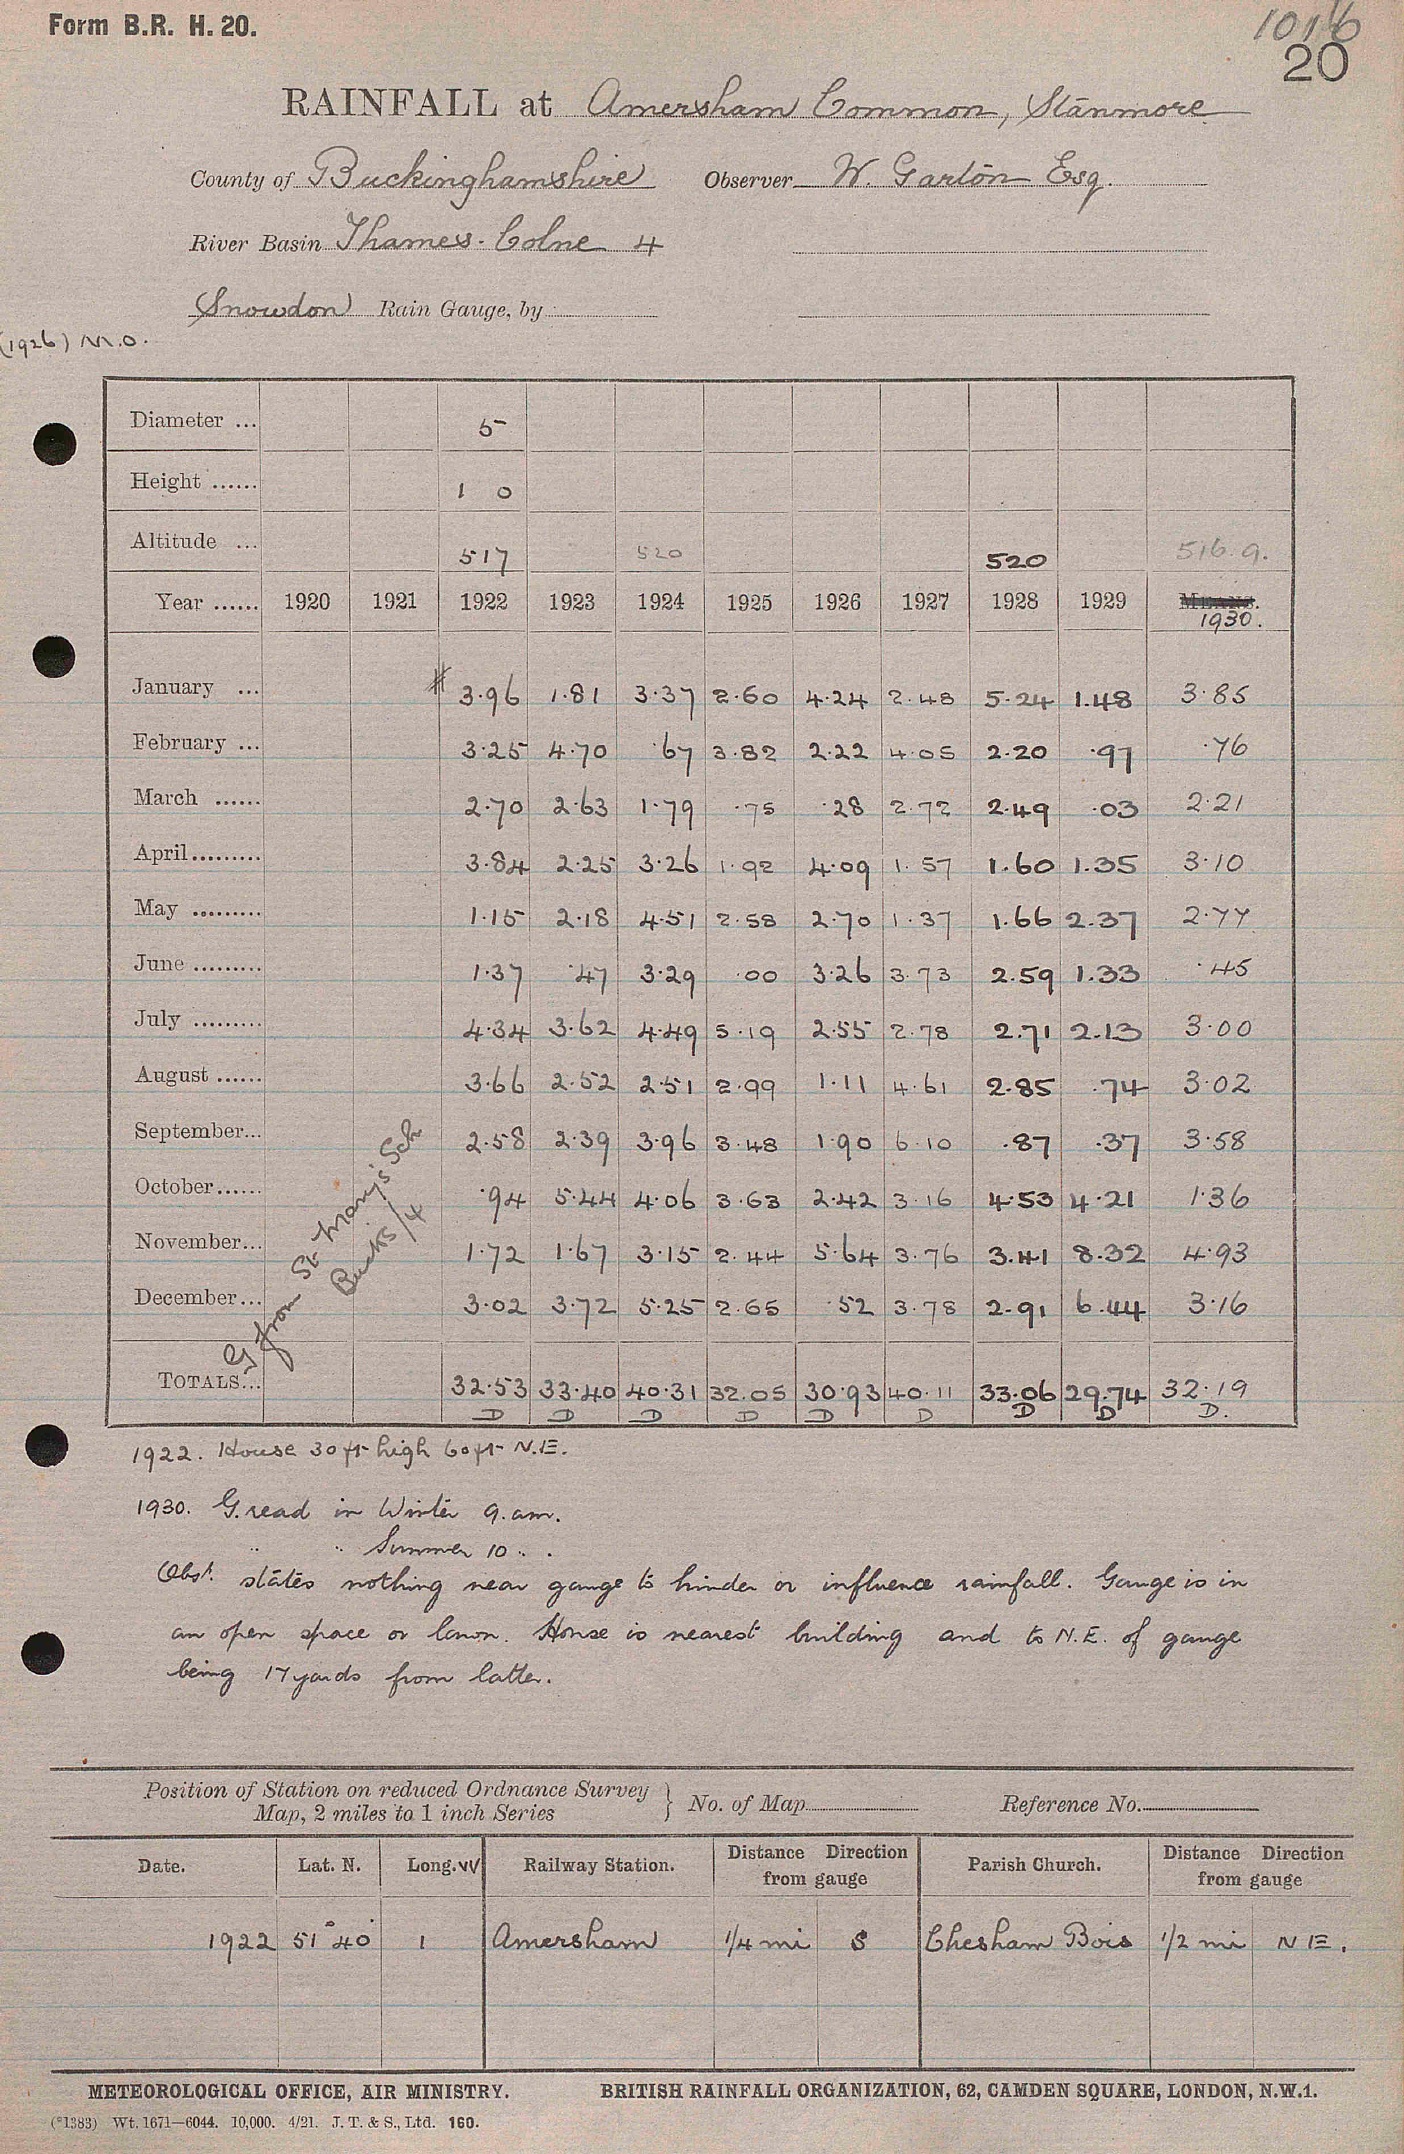 Form B.R. H. 20.
1016
20
RAINFALL at Amersham Common, Stanmore
County of Buckinghamshire Observer W. Garton Esq.
River Basin Thames. Colne 4
Snowdon Rain Gauge, by
(1926) M.O.
Diameter ... 5
Height ...... 1 0
Altitude ... 517 520 520 516.9.
Year ...... 1920 1921 1922 1923 1924 1925 1926 1927 1928 1929 MEANS.
1930.
January ... # 3.96 1.81 3.37 2.60 4.24 2.48 5.24 1.48 3.85
February ... 3.25 4.70 .67 3.82 2.22 4.05 2.20 .97 .76
March ...... 2.70 2.63 1.79 .75 .28 2.72 2.49 .03 2.21
April......... 3.84 2.25 3.26 1.92 4.09 1.57 1.60 1.35 3.10
May ......... 1.15 2.18 4.51 2.58 2.70 1.37 1.66 2.37 2.77
June ......... 1.37 .47 3.29 .00 3.26 3.73 2.59 1.33 .45
July ......... 4.34 3.62 4.49 5.19 2.55 2.78 2.71 2.13 3.00
August ...... 3.66 2.52 2.51 2.99 1.11 4.61 2.85 .74 3.02
September... 2.58 2.39 3.96 3.48 1.90 6.10 .87 .37 3.58
October...... .94 5.44 4.06 3.63 2.42 3.16 4.53 4.21 1.36
November... 1.72 1.67 3.15 2.44 5.64 3.76 3.41 8.32 4.93
December... 3.02 3.72 5.25 2.65 .52 3.78 2.91 6.44 3.16
G from St Mary's Sch
Bucks/4
TOTALS... 32.53 33.40 40.31 32.05 30.93 40.11 33.06 29.74 32.19
D D D D D D D D D.
1922. House 30 ft high 60 ft N.E.
1930. G. read in Winter 9. am.
" " Summer 10 " .
Obsr. states nothing near gauge to hinder or influence rainfall. Gauge is in
an open space or lawn. House is nearest building and to N.E. of gauge
being 17 yards from latter.
Position of Station on reduced Ordnance Survey
Map, 2 miles to 1 inch Series } No. of Map Reference No.
Date. Lat. N. Long. W Railway Station. Distance Direction from gauge Parish Church. Distance Direction from gauge
1922 51° 40' 1 Amersham 1/4 mi S Chesham Bois 1/2 mi N E.
METEOROLOGICAL OFFICE, AIR MINISTRY. BRITISH RAINFALL ORGANIZATION, 62, CAMDEN SQUARE, LONDON, N.W.1.
(*1383) Wt. 1671—6044. 10,000. 4/21. J. T. & S., Ltd. 160.